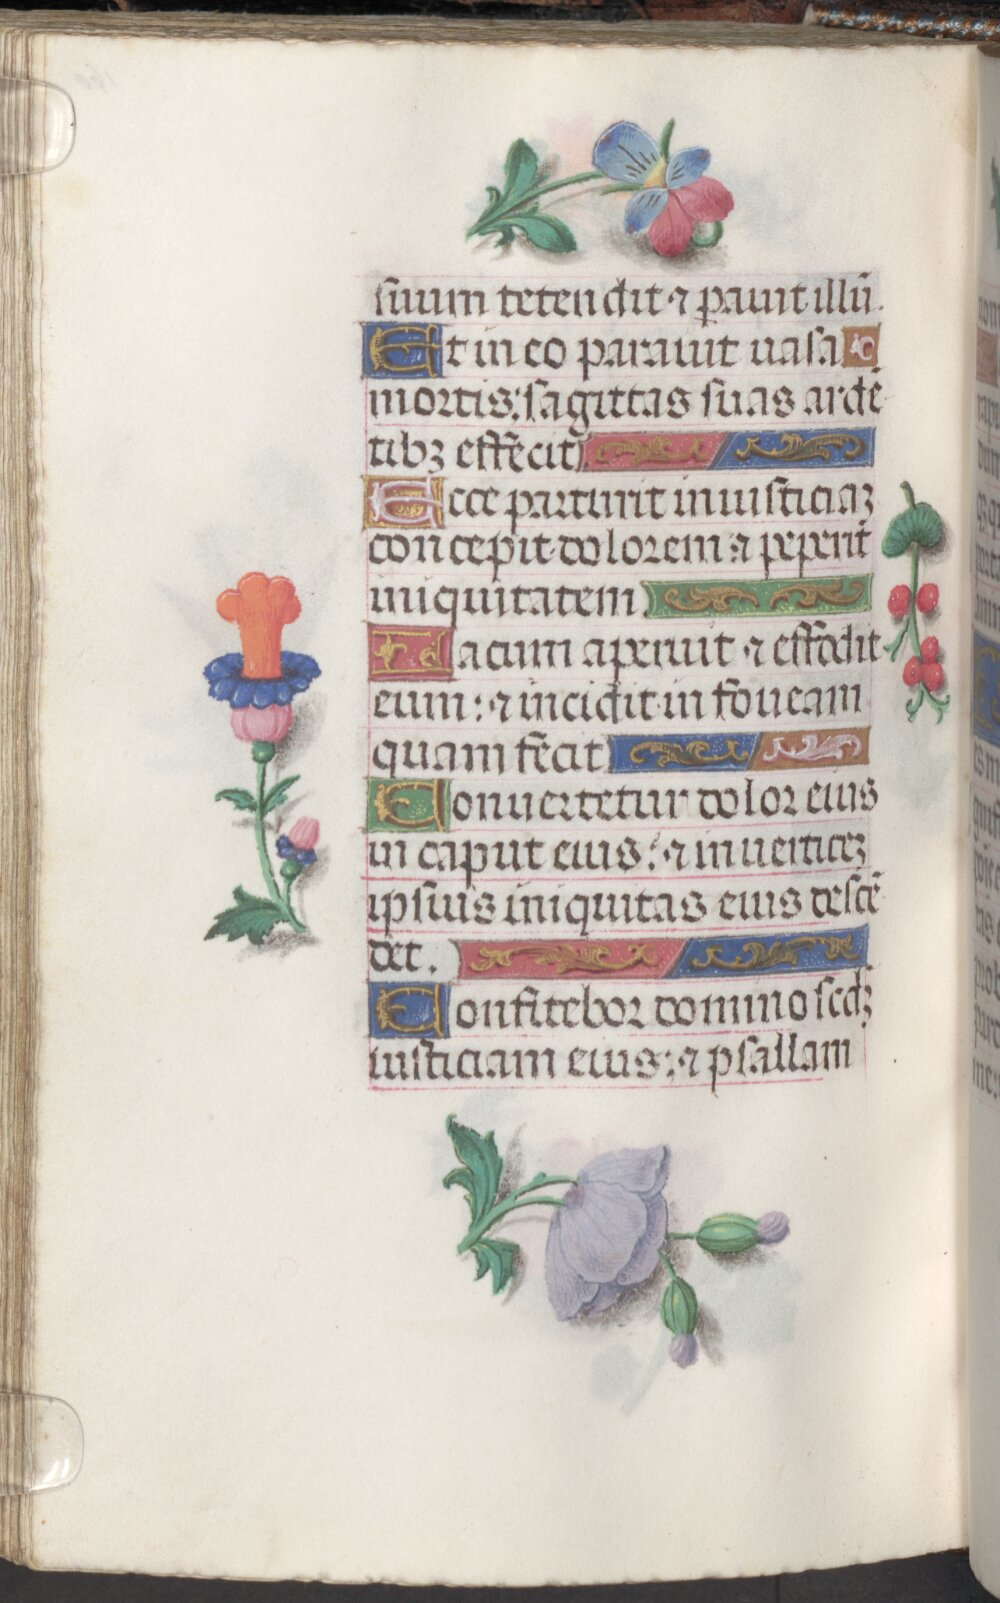 suum tetendit ⁊ ꝑauit illū.
Et in eo parauit uasa
mortis: sagittas suas ardē
tibꝫ effecit
Ecce parturit iniusticiaꝫ
concepit dolorem ⁊ peperit
iniquitatem.
Lacum aperuit ⁊ effodit
eum: ⁊ incidit in foueam
quam fecit
Conuertetur dolor eius
in caput eius: ⁊ in uerticeꝫ
ipsius iniquitas eius descē
det.
Confitebor domino scdꝫ
iusticiam eius: ⁊ psallam